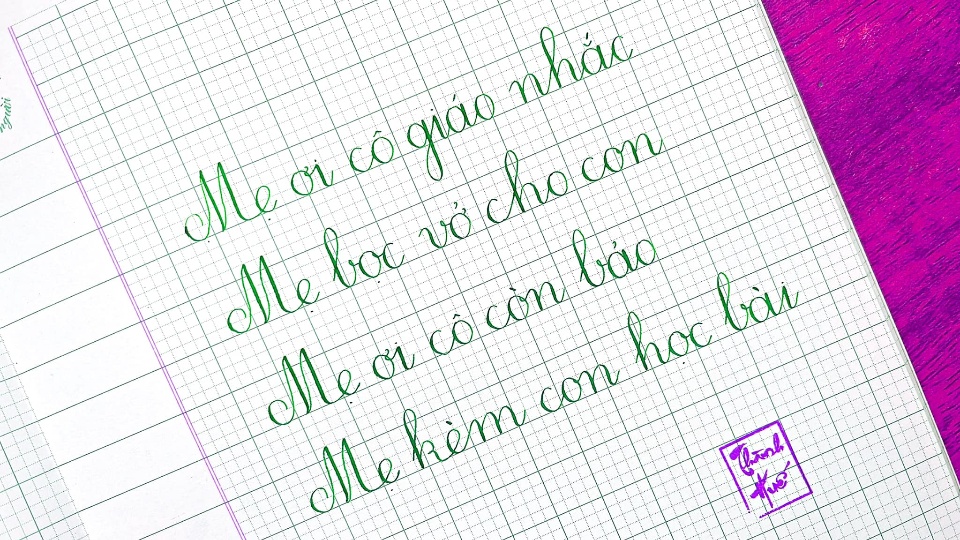 Mẹ ơi cô giáo nhắc
Mẹ bọc vở cho con
Mẹ ơi cô còn bảo
Mẹ kèm con học bài
người